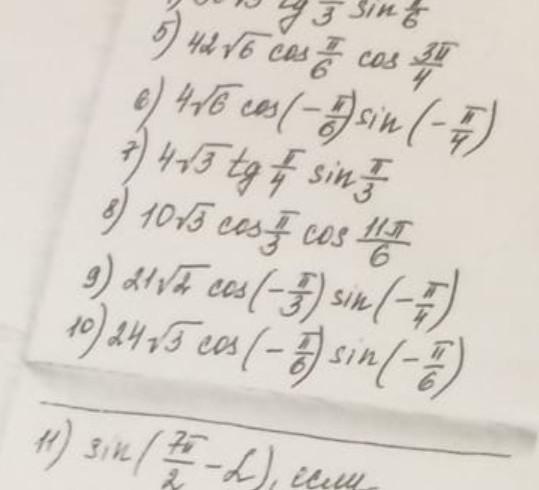 tg π/3 sin π/6
5) 42√6 cos π/6 cos 3π/4
6) 4√6 cos(-π/6) sin(-π/4)
7) 4√3 tg π/4 sin π/3
8) 10√3 cos π/3 cos 11π/6
9) 21√2 cos(-π/3) sin(-π/4)
10) 24√3 cos(-π/6) sin(-π/6)
11) sin(7π/2 - α), если